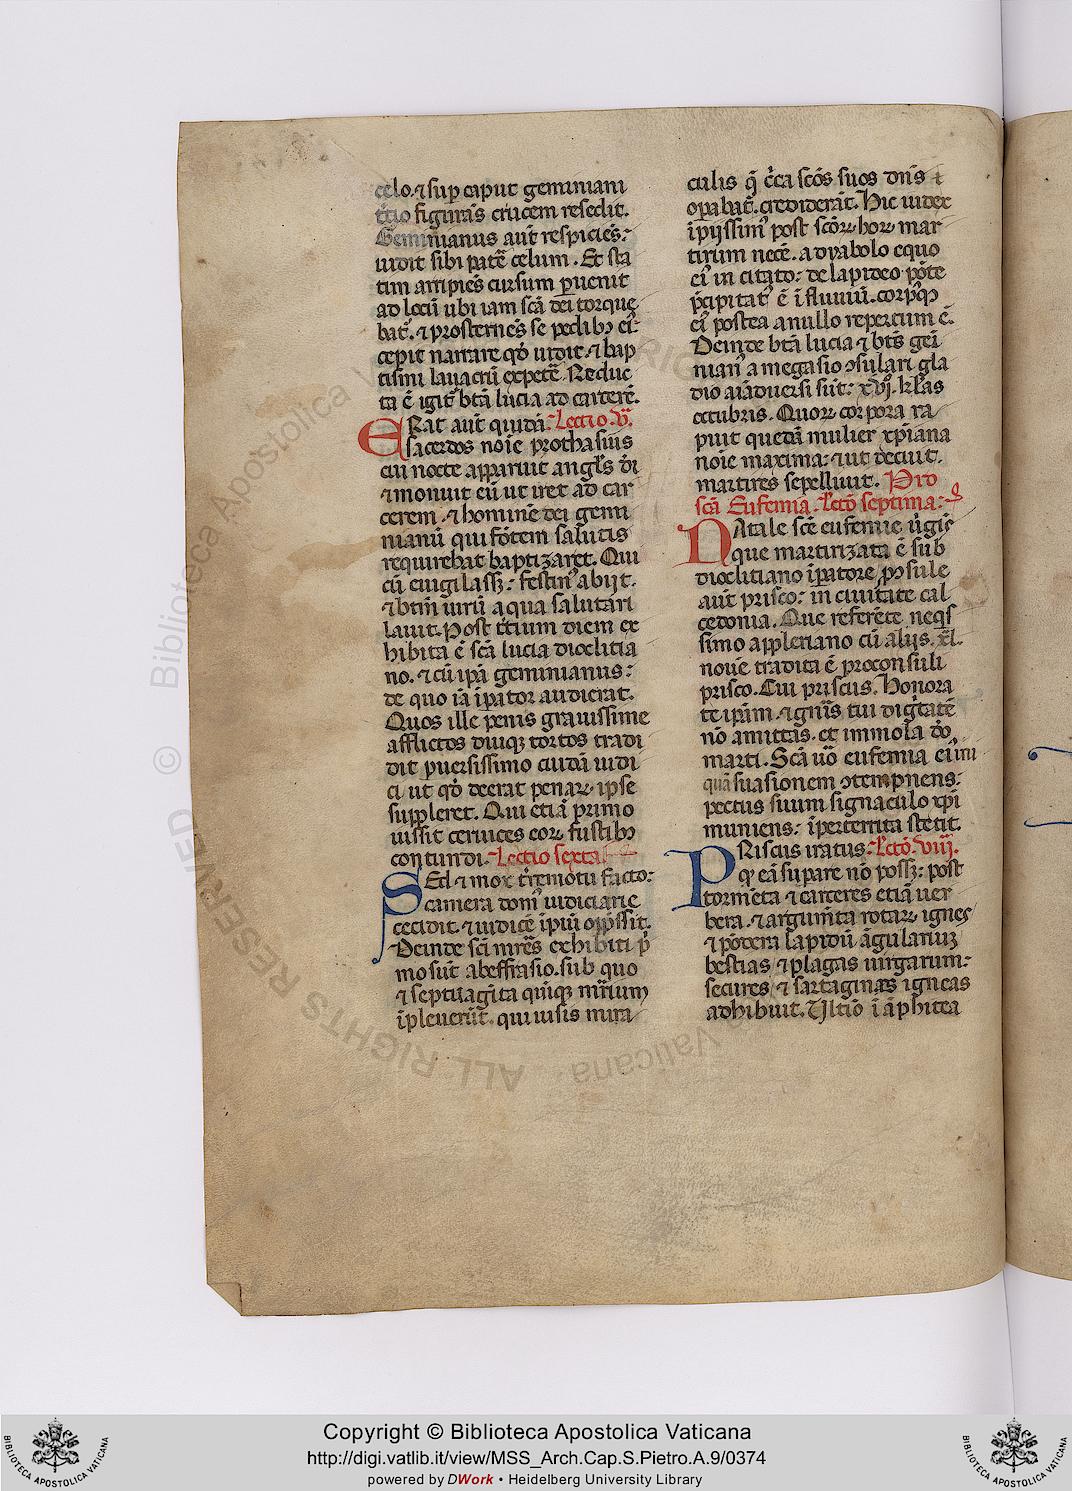 celo. ⁊ sup caput geminiani
t̾tio figurãs crucem resedit.
Geminianus aut̃ respiciẽs:
uidit sibi patẽ celum. Et sta
tim arripiẽs cursum puenit
ad locũ ubi iam scã dei torque
bat̃. ⁊ prosternẽs se pedibȝ ei᷒
cepit narrare qđ uidit. ⁊ bap
tismi lauacrũ expetẽ. Reduc
ta ẽ igit̃ btã lucia ad carcerẽ.
ERat aut̃ quidã: Lectio. v.
sacerdos noĩe prothasius
cui nocte apparuit angl̃s dĩ
⁊ monuit eũ ut iret ad car
cerem. ⁊ hominẽ dei gemi
nianũ qui fõtem salutis
requirebat baptizaret. Qui
cũ euigilassȝ: festin᷒ abijt.
⁊ btm̃ uirũ aqua salutari
lauit. Post t̾tium diem ex
hibita ẽ scã lucia dioclitia
no. ⁊ cũ ipã geminianus:
de quo iã ĩpator audierat.
Quos ille penis grauissime
afflictos diuqȝ tortos tradi
dit puersissimo cuidã iudi
ci ut qđ deerat penaꝝ ipse
suppleret. Qui etiã primo
iussit ceruices eoꝝ fustibȝ
contundi. Lectio sexta
SEd ⁊ mox t̾remotu facto:
camera dom᷒ iudiciarie
cecidit. ⁊ iudicẽ ĩpiũ opp̃ssit.
Deinde scĩ mr̃es exhibiti p̃
mo sũt ab effrasio. sub quo
⁊ septuagĩta quĩqȝ mr̃ium
ĩpleuerũt. qui uisis mira
culis q̃ c̃ca scõs suos dñs
opabat̃. crediderãt. Hic iudex
ĩpijssim᷒ post scõꝝ hoꝝ mar
tirum necẽ. a dyabolo equo
ei᷒ in citato: de lapideo põte
p̃cipitat᷒ ẽ ĩ fluuiũ. corp᷒qȝ
ei᷒ postea a nullo repertum ẽ.
Deinde btã lucia ⁊ bt̃s gem̃
nian᷒ a megasio ↄsulari gla
dio aĩaduersi sũt: xvj. kl̃as
octubris. Quoꝝ corpora ra
puit quedã mulier xp̃iana
noĩe maxima: ⁊ ut decuit.
martires sepelliuit. Pro
scã Eufemia. Lctõ septima:
NAtale scẽ eufemie ũgĩs
que martirizata ẽ sub
dioclitiano ĩpatore, ꝓↄsule
aut̃ prisco: in ciuitate cal
cedonia. Que referẽte neqis
simo appleriano cũ alijs. xl.
nouẽ tradita ẽ proconsuli
prisco. Cui priscus. Honora
te ipãm. ⁊ gñis tui dig̃tatẽ
nõ amittas. et immola dõ
marti. Scã uõ eufemia ei᷒ ini
quã suasionem ↄtempnens:
pectus suum signaculo xp̃i
muniens: ĩperterrita stetit.
PRiscus iratus: Lctõ. viij.
qȝ eã supare nõ possȝ: post
tormẽta ⁊ carceres etiã uer
bera. ⁊ argumt̃a rotaꝝ ignes
⁊ põdera lapidũ ãgulariuȝ
bestias ⁊ plagas uirgarum:
secures ⁊ sartagines igneas
adhibuit. Ultiõ ĩ ãphitea
Copyright © Biblioteca Apostolica Vaticana
http://digi.vatlib.it/view/MSS_Arch.Cap.S.Pietro.A.9/0374
powered by DWork • Heidelberg University Library